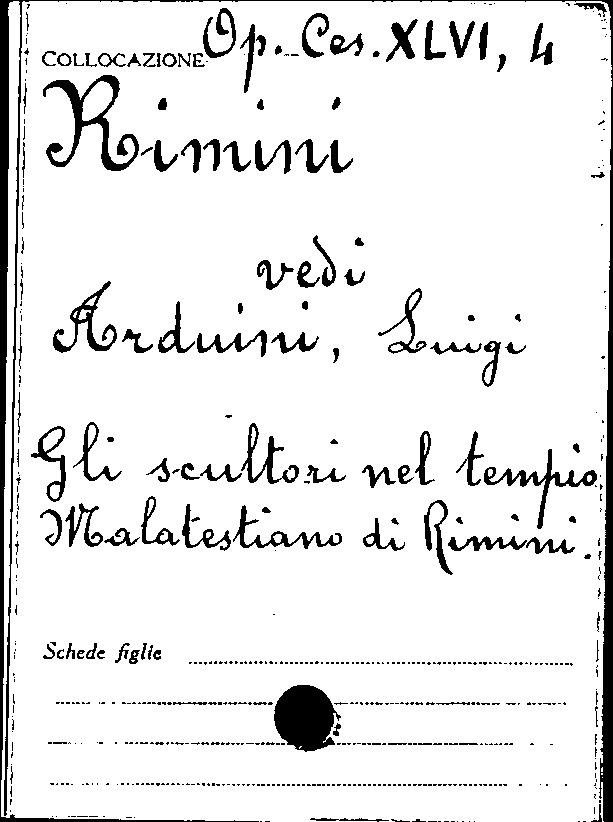 COLLOCAZIONE Op. Ces. XLVI, 4
Rimini
vedi
Arduini, Luigi
Gli scultori nel tempio
Malatestiano di Rimini.
Schede figlie